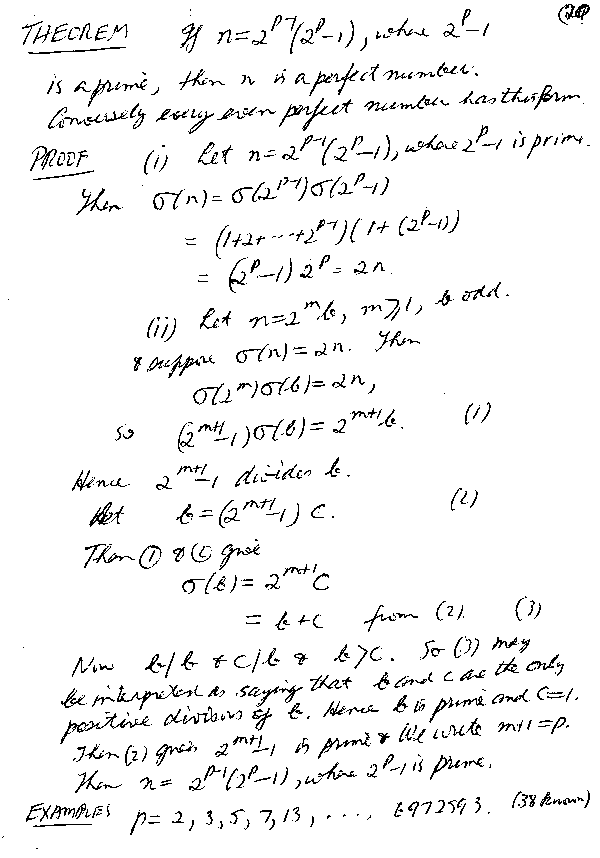 (20)
THEOREM If n=2^{p-1}(2^p-1), where 2^p-1
is a prime, then n is a perfect number.
Conversely every even perfect number has this form.
PROOF (i) Let n=2^{p-1}(2^p-1), where 2^p-1 is prime.
Then σ(n)=σ(2^{p-1})σ(2^p-1)
= (1+2+···+2^{p-1})(1+(2^p-1))
= (2^p-1)2^p = 2n.
(ii) Let n=2^m b, m≥1, b odd.
& suppose σ(n)=2n. Then
σ(2^m)σ(b)=2n,
so (2^{m+1}-1)σ(b)=2^{m+1}b. (1)
Hence 2^{m+1}-1 divides b.
Let b=(2^{m+1}-1)C. (2)
Then ① & ② give
σ(b)=2^{m+1}C
= b+C from (2). (3)
Now b/b & C/b & b>C. So (3) may
be interpreted as saying that b and C are the only
positive divisors of b. Hence b is prime and C=1.
Then (2) gives 2^{m+1}-1 is prime & We write m+1=p.
Then n= 2^{p-1}(2^p-1), where 2^p-1 is prime.
EXAMPLES p=2, 3, 5, 7, 13, ...., 6972593. (38 known)